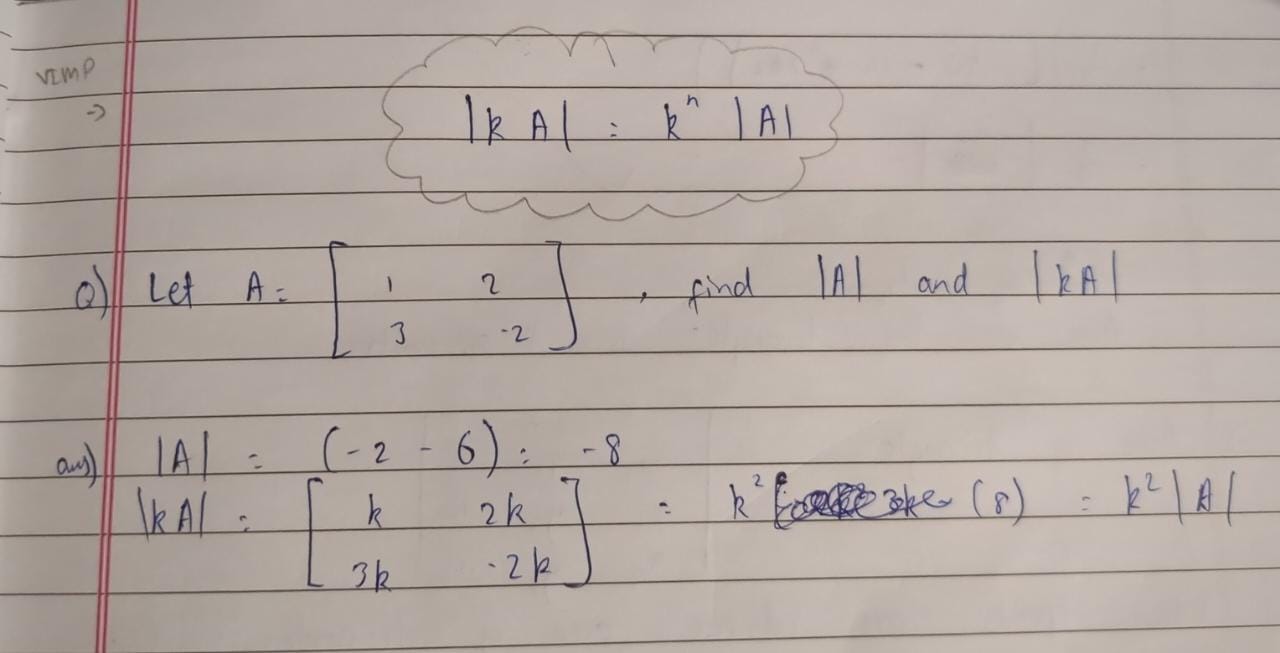 VIMP
→
|k A| = kⁿ |A|
Q) Let A = [ 1 2 , find |A| and |kA|
3 -2 ]
ans) |A| = (-2 - 6) = -8
|kA| = [ k 2k = k² (8) = k²|A|
3k -2k ]